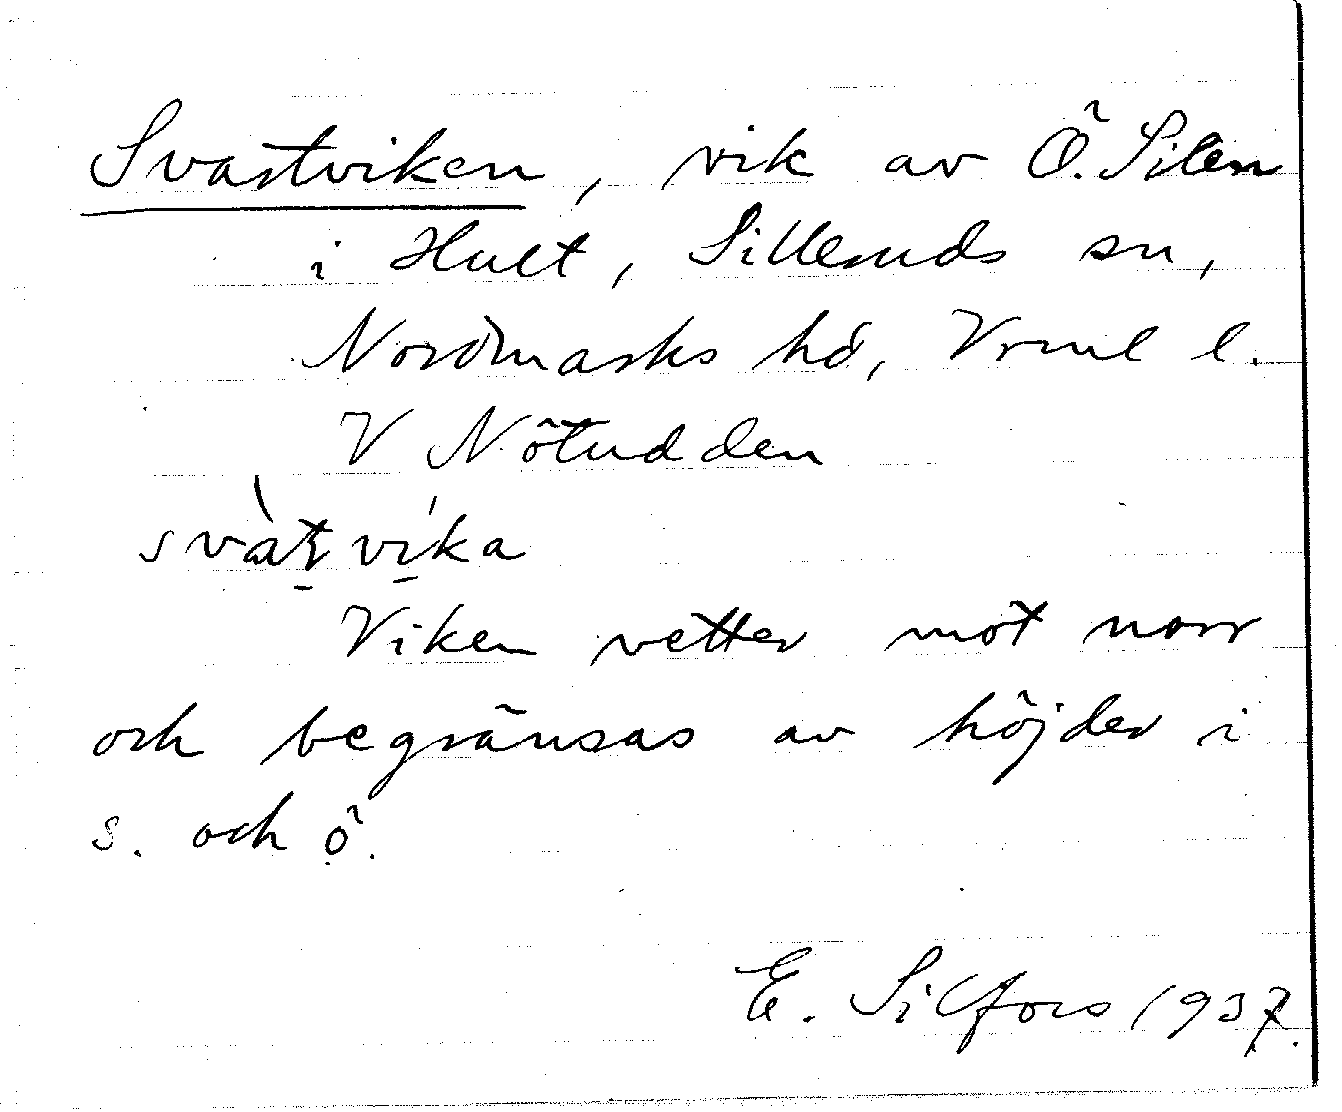 Svastviken, vik av Ö. Silen
i Hult, Silleruds sn,
Nordmarks hd, Vrml l.
V Nötudden
svàt̠vi̠ka
Viken vetter mot norr
och begränsas av höjder i
s. och ö.
E. Silfors 1937.